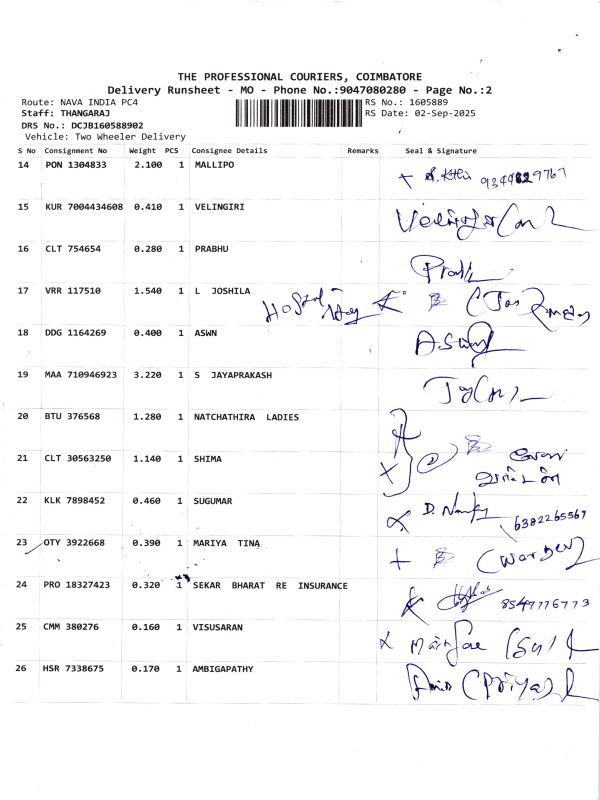 THE PROFESSIONAL COURIERS, COIMBATORE
Delivery Runsheet - MO - Phone No.:9047080280 - Page No.:2
Route: NAVA INDIA PC4 RS No.: 1605889
Staff: THANGARAJ RS Date: 02-Sep-2025
DRS No.: DCJB160588902
Vehicle: Two Wheeler Delivery
S No Consignment No Weight PCS Consignee Details Remarks Seal & Signature
14 PON 1304833 2.100 1 MALLIPO
15 KUR 7004434608 0.410 1 VELINGIRI
16 CLT 754654 0.280 1 PRABHU
17 VRR 117510 1.540 1 L JOSHILA
18 DDG 1164269 0.400 1 ASWN
19 MAA 710946923 3.220 1 S JAYAPRAKASH
20 BTU 376568 1.280 1 NATCHATHIRA LADIES
21 CLT 30563250 1.140 1 SHIMA
22 KLK 7898452 0.460 1 SUGUMAR 6382265567
23 OTY 3922668 0.390 1 MARIYA TINA (warden)
24 PRO 18327423 0.320 1 SEKAR BHARAT RE INSURANCE 8547776773
25 CMM 380276 0.160 1 VISUSARAN
26 HSR 7338675 0.170 1 AMBIGAPATHY (Priya)